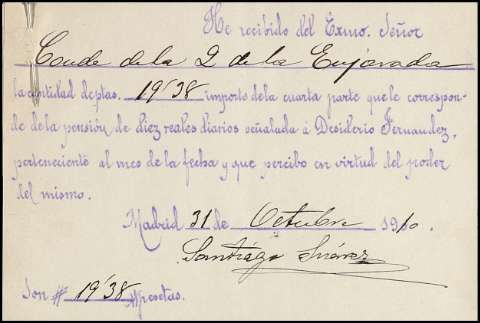 He recibido del Exmo. Señor
Conde de la Q de la Enjarada
la cantidad de ptas. 19'38 importe de la cuarta parte que le correspon-
de de la pensión de diez reales diarios señalada á Desiderio Fernandez,
perteneciente al mes de la fecha y que percibo en virtud del poder
del mismo.
Madrid 31 de Octubre 1910.
Santiago Suárez
Son # 19'38 # pesetas.